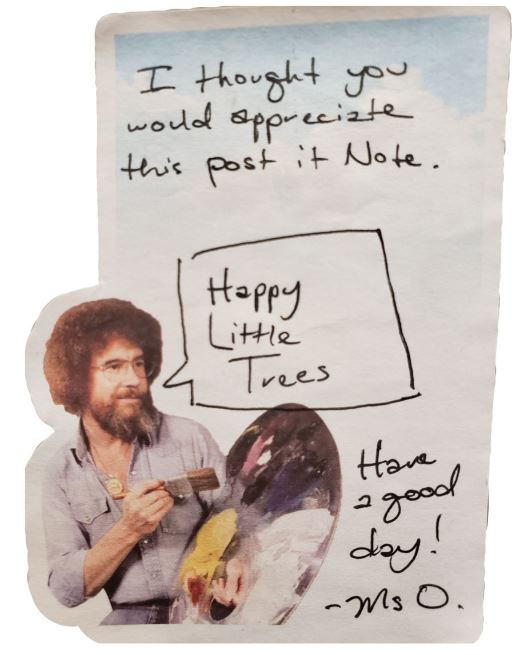 I thought you
would appreciate
this post it Note.
Happy
Little
Trees
Have
a good
day!
-Ms O.